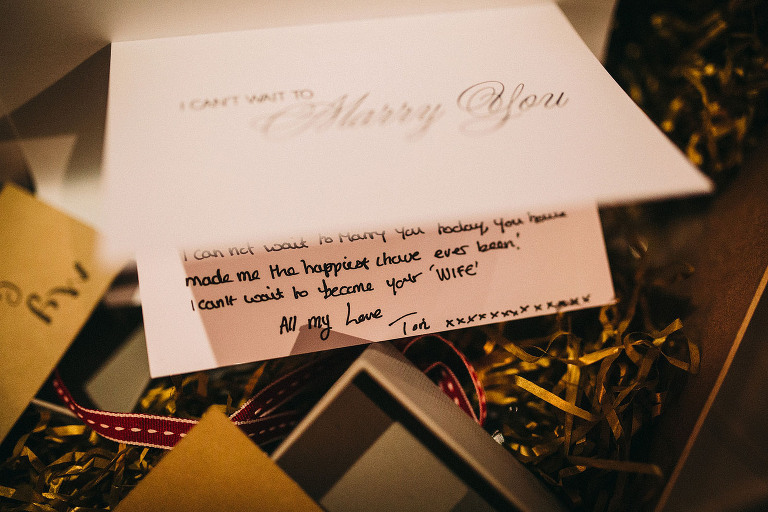 I CAN'T WAIT TO Marry You
I can not wait to Marry you today, you have
made me the happiest I have ever been!
I can't wait to become your 'WIFE'
All my Love Tori xxxxxxxxxxxx